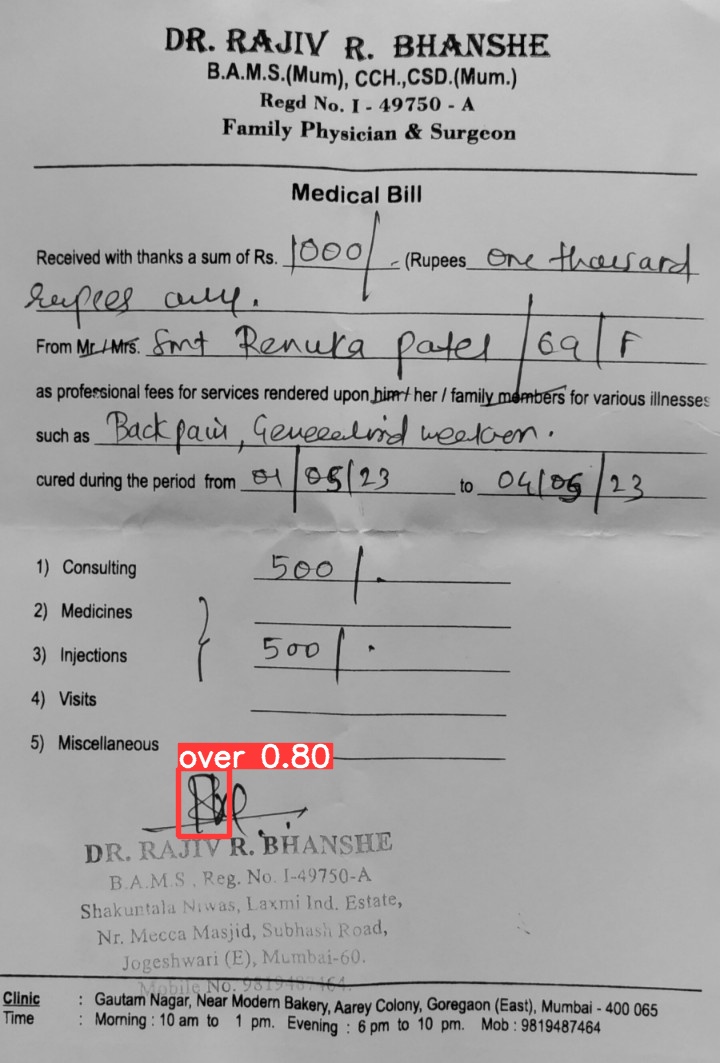 DR. RAJIV R. BHANSHE
B.A.M.S.(Mum), CCH.,CSD.(Mum.)
Regd No. I - 49750 - A
Family Physician & Surgeon
Medical Bill
Received with thanks a sum of Rs. 1000/- (Rupees One thousand
rupees only.
From Mr./Mrs. Smt Renuka Patel / 69 / F
as professional fees for services rendered upon him / her / family members for various illnesses
such as Back pain,
cured during the period from 01/05/23 to 04/05/23
1) Consulting 500/.
2) Medicines
3) Injections 500/.
4) Visits
5) Miscellaneous
over 0.80
DR. RAJIV R. BHANSHE
B.A.M.S , Reg. No. I-49750-A
Shakuntala Niwas, Laxmi Ind. Estate,
Nr. Mecca Masjid, Subhash Road,
Jogeshwari (E), Mumbai-60.
Mobile No. 9819487464.
Clinic : Gautam Nagar, Near Modern Bakery, Aarey Colony, Goregaon (East), Mumbai - 400 065
Time : Morning : 10 am to 1 pm. Evening : 6 pm to 10 pm. Mob : 9819487464